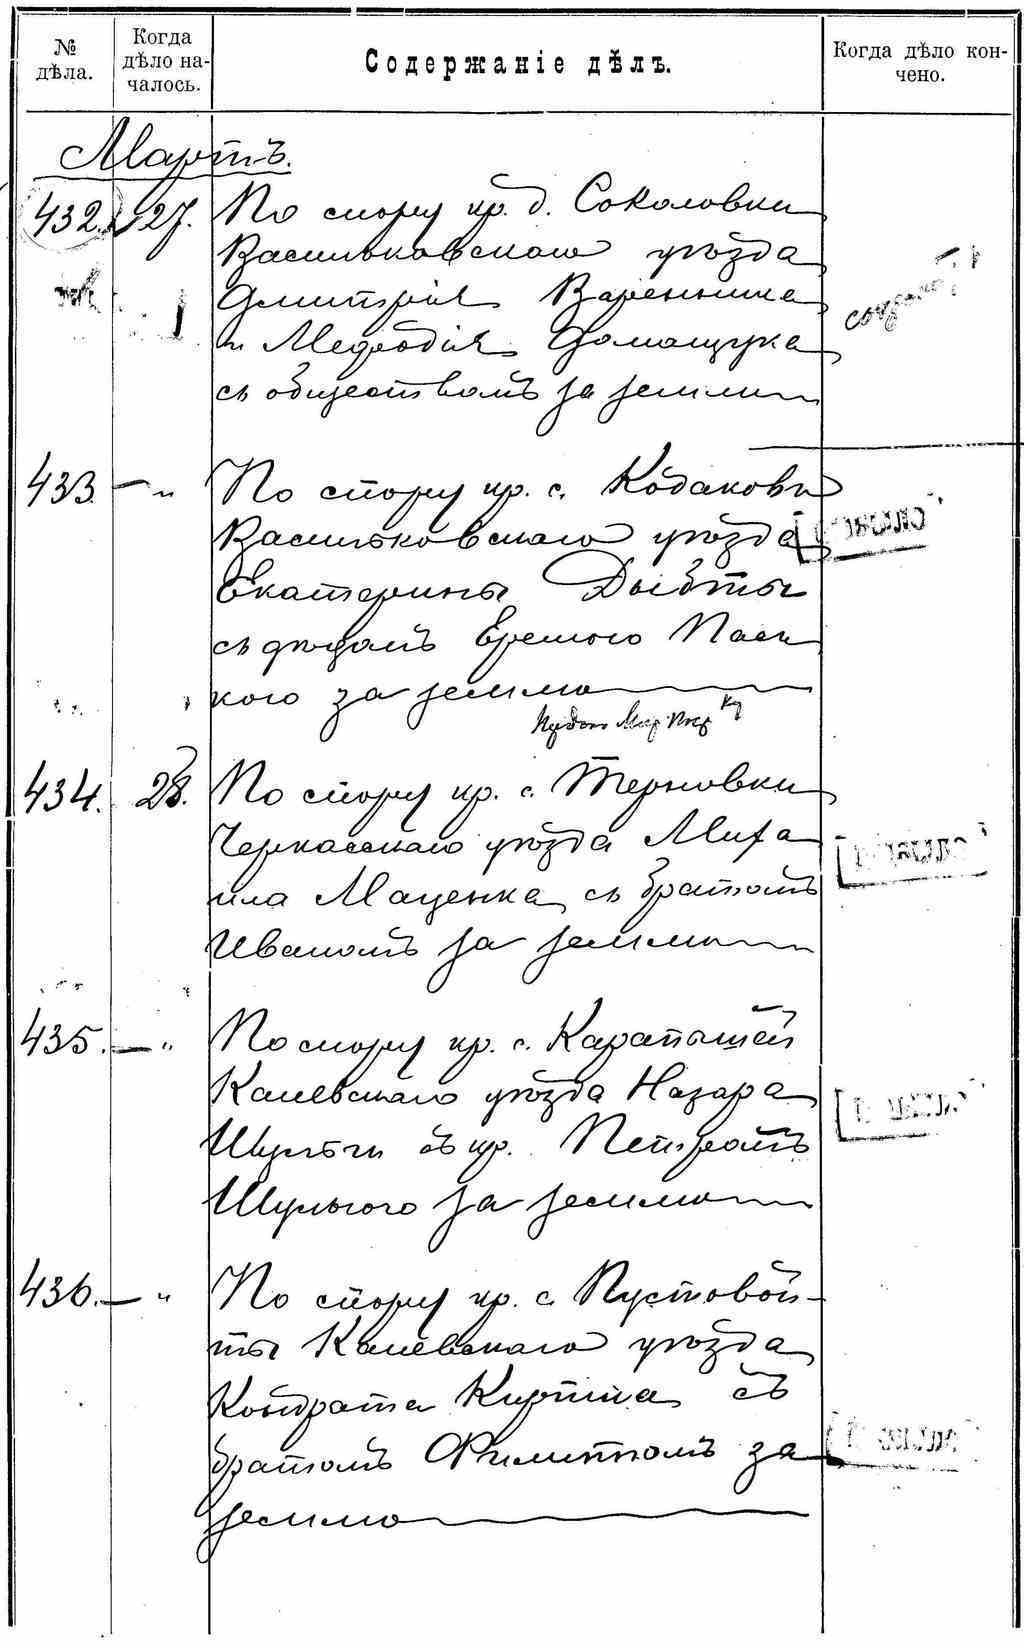 № дѣла.
Когда дѣло началось.
Содержаніе дѣлъ.
Когда дѣло кончено.
Мартъ.
432. 27. По спору кр. д. Соколовки
Васильковскаго уѣзда
Дмитрія Вареника
и Мефодія Домащука
съ обществомъ за землю
433. — „ По спору кр. с. Кодаковки
Васильковскаго уѣзда
Екатерины
съ дѣдомъ
кого за землю
434. 28. По спору кр. с. Терновки
Черкасскаго уѣзда Миха
ила Маценка съ братомъ
Иваномъ за землю
435. — „ По спору кр. с. Карапышей
Каневскаго уѣзда Назара
Шульги съ кр. Петромъ
Шульгою за землю
436. — „ По спору кр. с. Пустовой-
ты Каневскаго уѣзда
Кондрата съ
братомъ Филиппомъ за
землю